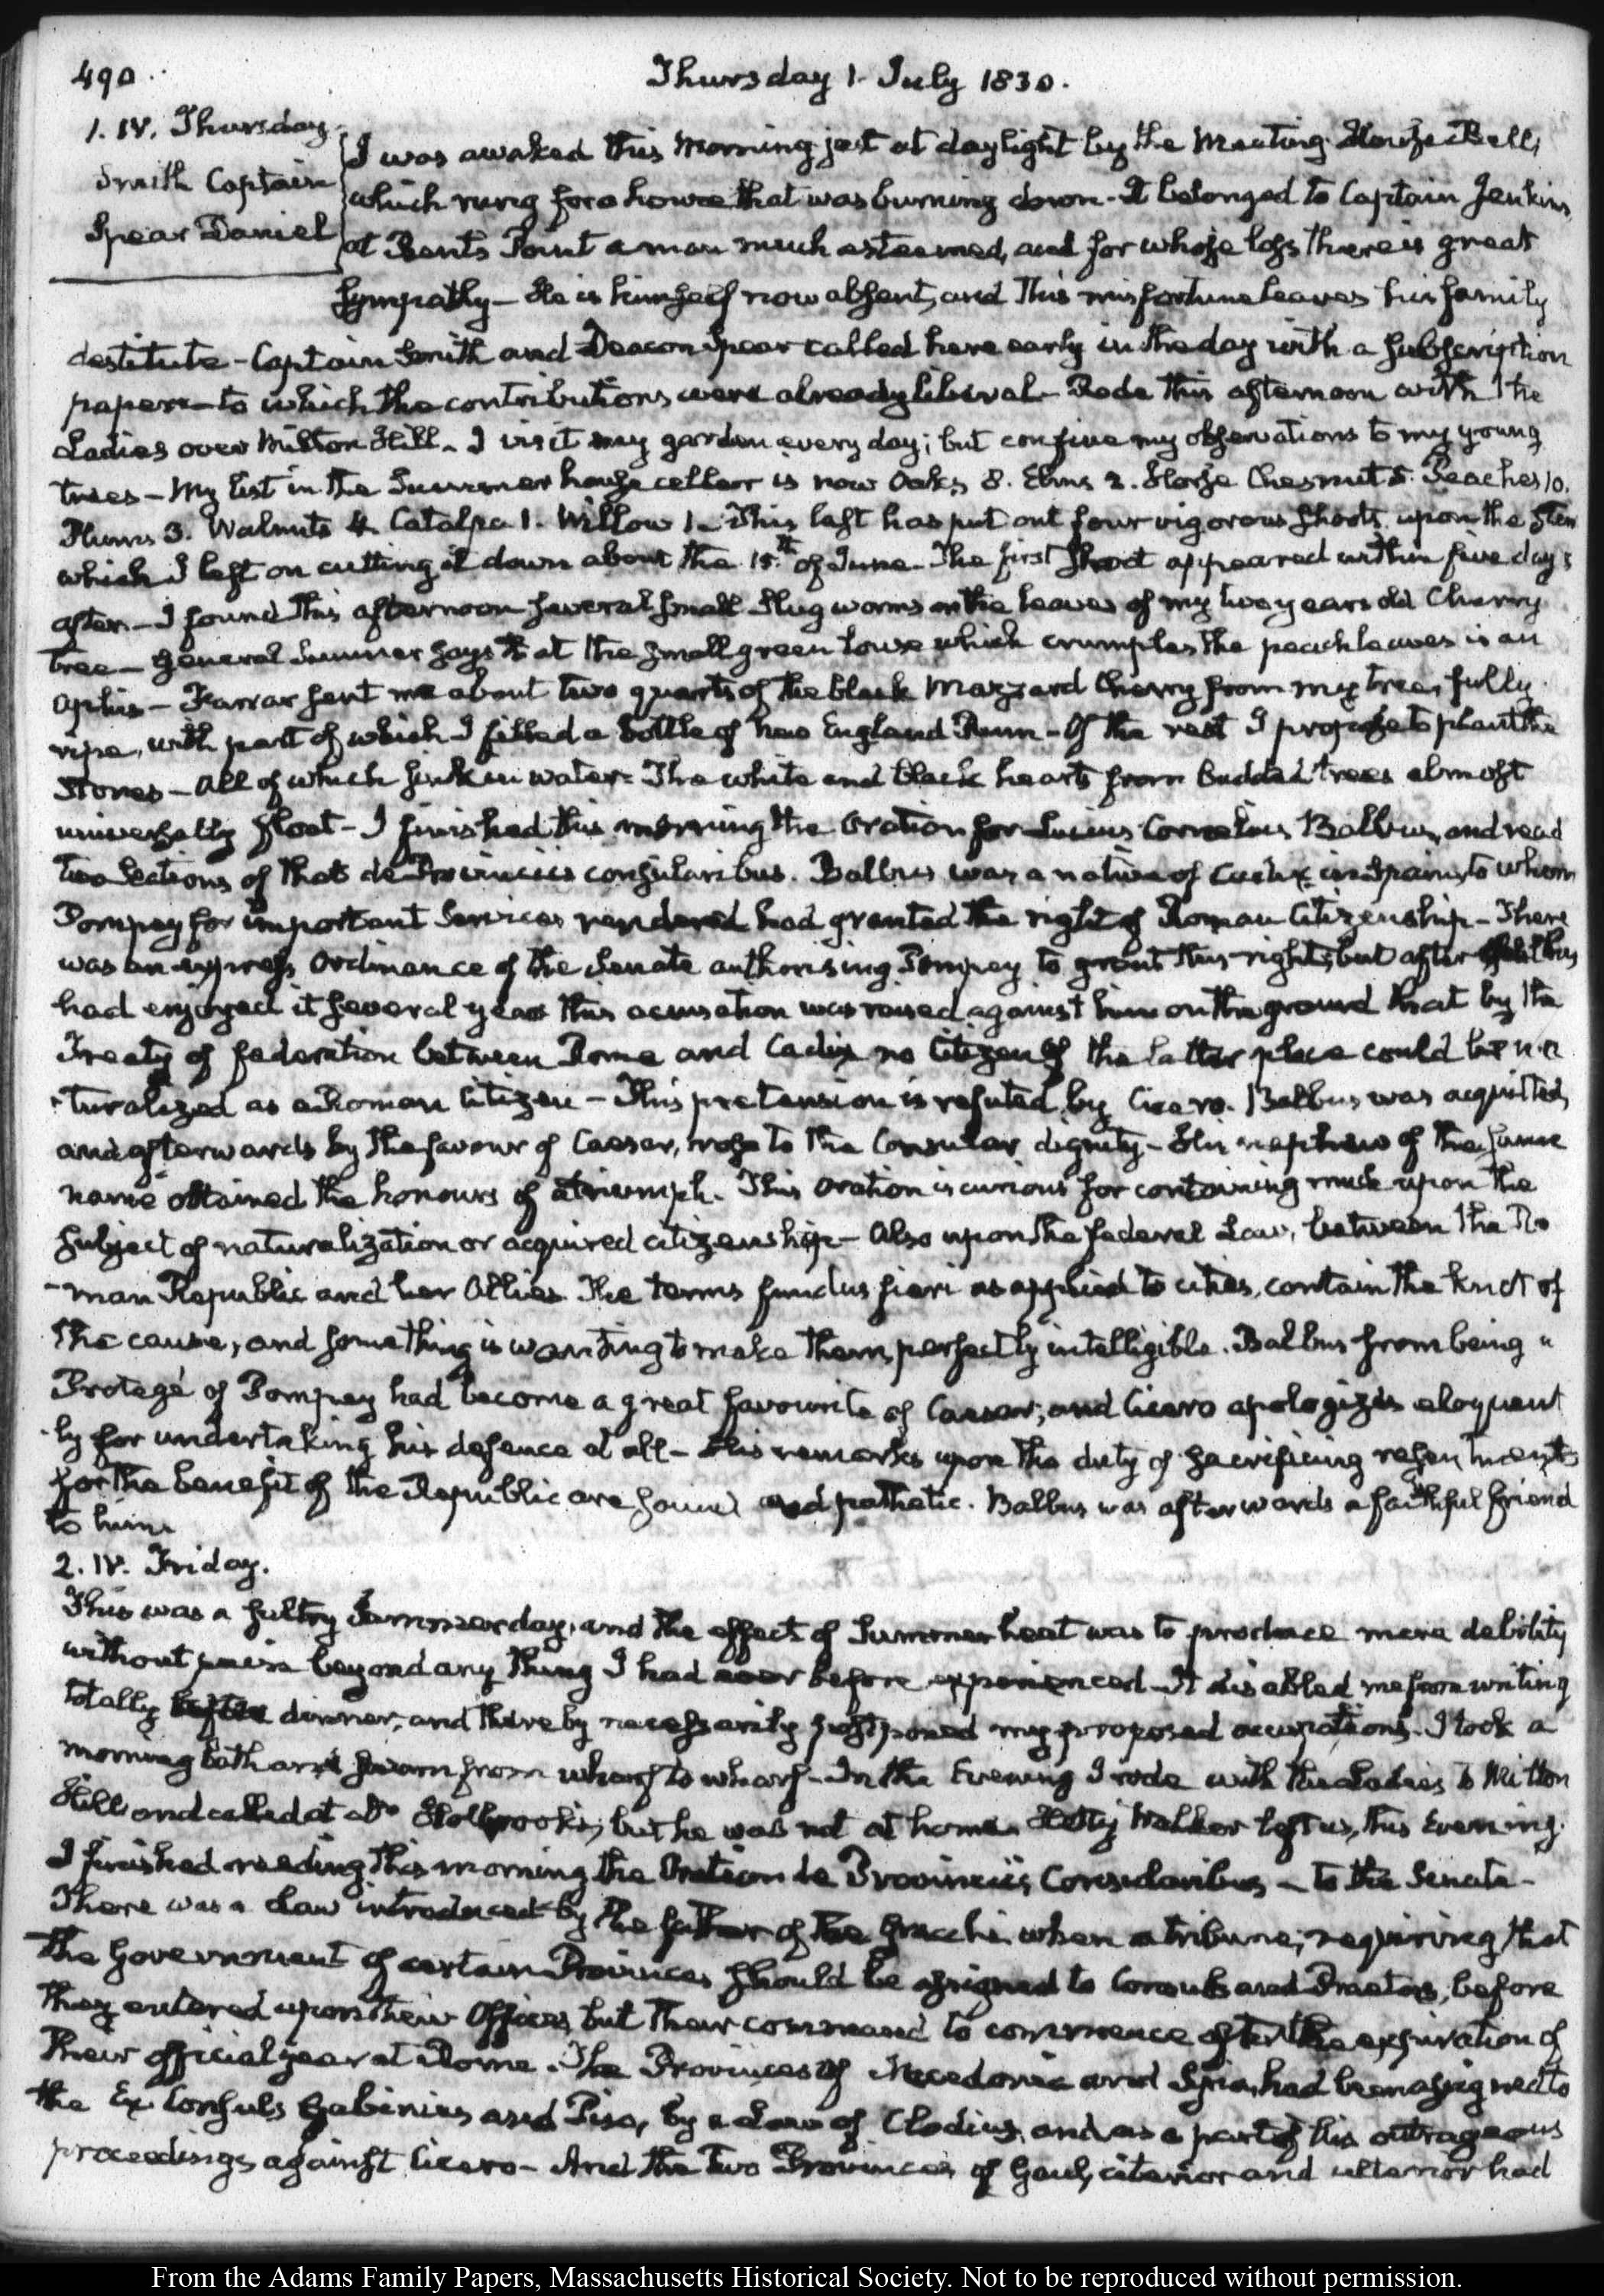 490.
Thursday 1. July 1830.
1. IV. Thursday.
Smith Captain
Spear Daniel
I was awaked this Morning just at daylight by the Meeting House Bell,
which rung for a house that was burning down. It belonged to Captain Jenkins
at Bents Point a man much esteemed, and for whose loss there is great
sympathy — He is himself now absent, and this misfortune leaves his family
destitute — Captain Smith and Deacon Spear called here early in the day with a subscription
paper — to which the contributions were already liberal — Rode this afternoon with the
Ladies over Milton Hill — I visit my garden every day; but confine my observations to my young
trees — My list in the Summer house cellar is now Oaks 8. Elms 2. Horse Chesnut 5. Peaches 10.
Plums 3. Walnuts 4. Catalpa 1. Willow 1 — This last has put out four vigorous shoots upon the stem
which I left on cutting it down about the 15th of June. The first shoot appeared within five days
after — I found this afternoon several small slug worms on the leaves of my two years old Cherry
tree — General Sumner says that the small green louse which crumples the peach leaves is an
Aphis — Farrar sent me about two quarts of the black Mazzard Cherry from my tree, fully
ripe, with part of which I filled a bottle of New England Rum — Of the rest I propose to plant the
stones — All of which sink in water. The white and black hearts from budded trees almost
universally float — I finished this morning the Oration for Lucius Cornelius Balbus, and read
two Sections of that de Provinciis consularibus. Balbus was a native of Cadix in Spain, to whom
Pompey for important services rendered had granted the right of Roman Citizenship — There
was an express Ordinance of the Senate authorising Pompey to grant this right, but after Balbus
had enjoyed it several years this accusation was raised against him on the ground that by the
Treaty of federation between Rome and Cadix no Citizen of the latter place could be na
-turalized as a Roman Citizen — This pretension is refuted by Cicero. Balbus was acquitted,
and afterwards by the favour of Caesar, rose to the Consular dignity — His nephew of the same
name obtained the honours of a triumph. This Oration is curious for containing much upon the
subject of naturalization or acquired citizenship — Also upon the federal Law, between the Ro
-man Republic and her Allies. The terms fundus fieri as applied to cities, contain the knot of
the cause, and something is wanting to make them perfectly intelligible. Balbus from being a
Protegé of Pompey had become a great favourite of Caesar; and Cicero apologizes eloquent
-ly for undertaking his defence at all — His remarks upon the duty of sacrificing resentments
for the benefit of the Republic are sound and pathetic. Balbus was afterwards a faithful friend
to him.
2. IV. Friday.
This was a sultry Summer day, and the effect of Summer heat was to produce mere debility
without pain beyond any thing I had ever before experienced — It disabled me from writing
totally dinner, and thereby necessarily postponed my proposed occupations. I took a
morning bath and swam from wharf to wharf — In the Evening I rode with the Ladies to Milton
Hill and called at Holbrook's; but he was not at home. Hetty Walker left us, this Evening.
I finished reading this morning the Oration de Provinciis Consularibus — to the Senate —
There was a Law introduced by the father of the Gracchi when a tribune; requiring that
the Government of certain Provinces should be assigned to Consuls and Praetors, before
they entered upon their Offices, but their command to commence after the expiration of
their official year at Rome. The Provinces of Macedonia and Syria, had been assigned to
the Ex Consuls Gabinius and Piso, by a Law of Clodius, and as a part of his outrageous
proceedings against Cicero — And the two Provinces of Gaul, citerior and ulterior had
From the Adams Family Papers, Massachusetts Historical Society. Not to be reproduced without permission.